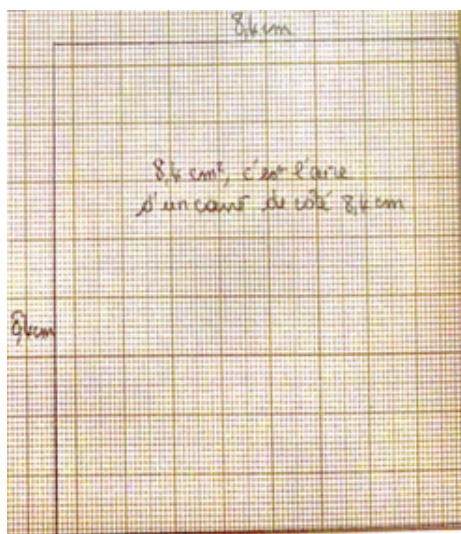 8,4 cm
8,4 cm², c'est l'aire
d'un carré de côté 8,4 cm
8,4cm